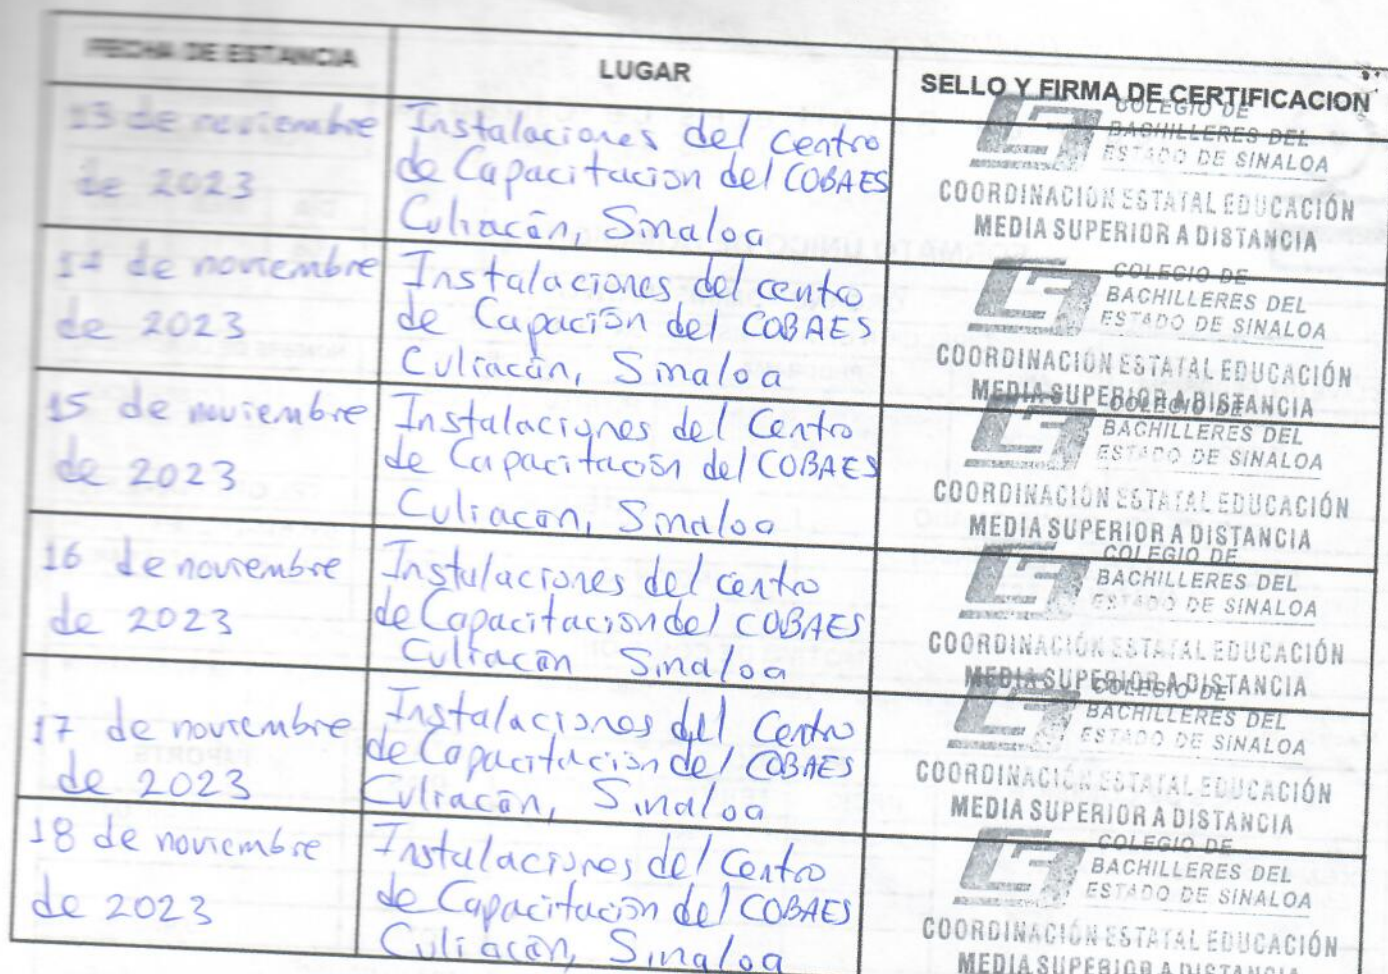 FECHA DE ESTANCIA
LUGAR
SELLO Y FIRMA DE CERTIFICACION
13 de noviembre
de 2023
Instalaciones del Centro
de Capacitacion del COBAES
Culiacán, Sinaloa
COLEGIO DE
BACHILLERES DEL
ESTADO DE SINALOA
COORDINACIÓN ESTATAL EDUCACIÓN
MEDIA SUPERIOR A DISTANCIA
14 de noviembre
de 2023
Instalaciones del centro
de Capación del COBAES
Culiacán, Sinaloa
COLEGIO DE
BACHILLERES DEL
ESTADO DE SINALOA
COORDINACIÓN ESTATAL EDUCACIÓN
MEDIA SUPERIOR A DISTANCIA
15 de noviembre
de 2023
Instalaciones del Centro
de Capacitación del COBAES
Culiacán, Sinaloa
COLEGIO DE
BACHILLERES DEL
ESTADO DE SINALOA
COORDINACIÓN ESTATAL EDUCACIÓN
MEDIA SUPERIOR A DISTANCIA
16 de noviembre
de 2023
Instalaciones del centro
de Capacitación del COBAES
Culiacán Sinaloa
COLEGIO DE
BACHILLERES DEL
ESTADO DE SINALOA
COORDINACIÓN ESTATAL EDUCACIÓN
MEDIA SUPERIOR A DISTANCIA
17 de noviembre
de 2023
Instalaciones del Centro
de Capacitación del COBAES
Culiacán, Sinaloa
COLEGIO DE
BACHILLERES DEL
ESTADO DE SINALOA
COORDINACIÓN ESTATAL EDUCACIÓN
MEDIA SUPERIOR A DISTANCIA
18 de noviembre
de 2023
Instalaciones del Centro
de Capacitación del COBAES
Culiacán, Sinaloa
COLEGIO DE
BACHILLERES DEL
ESTADO DE SINALOA
COORDINACIÓN ESTATAL EDUCACIÓN
MEDIA SUPERIOR A DISTANCIA